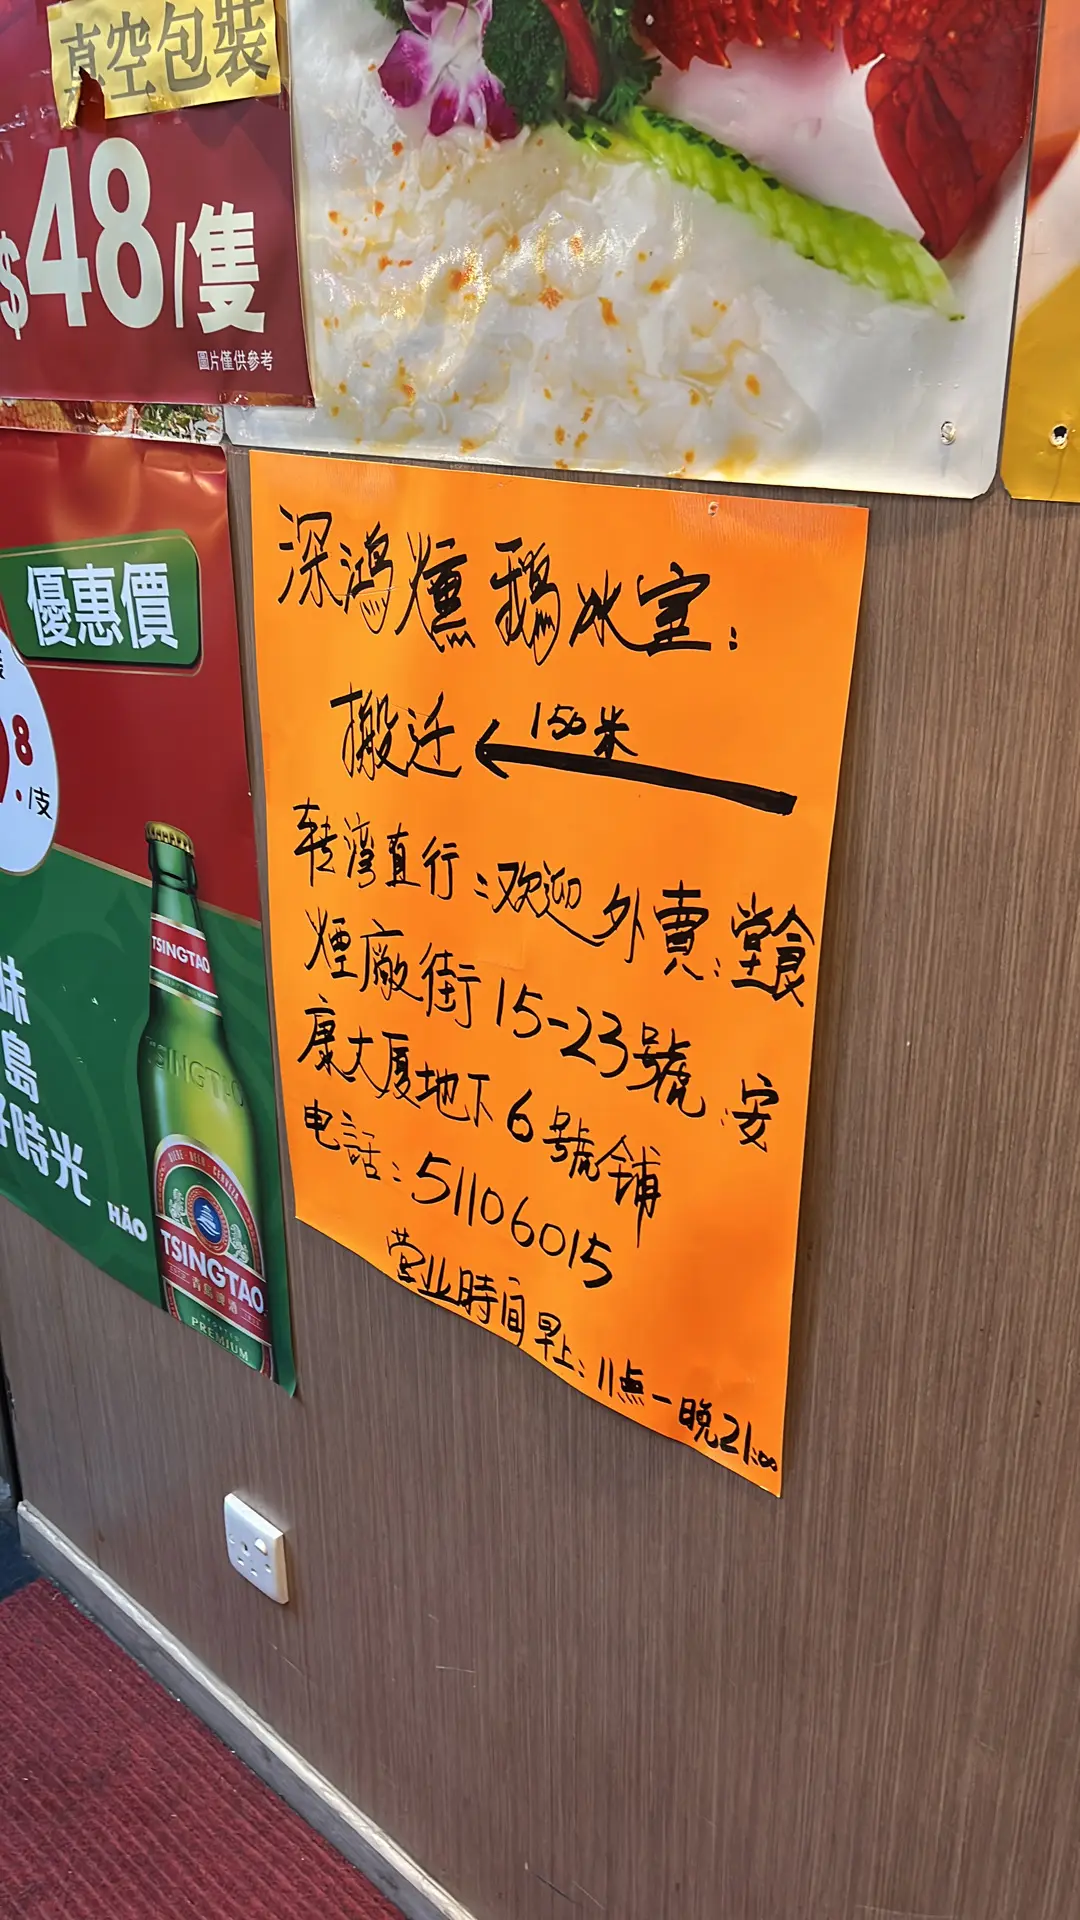 真空包裝
$48/隻
圖片僅供參考
優惠價
8
/支
TSINGTAO
味
島
好時光
HÃO
TSINGTAO
青島啤酒
PREMIUM
深鴻燻鵝冰室:
搬迁 ← 150米
转湾直行:欢迎外賣:堂食
煙廠街15-23號 安
康大厦地下6號铺
电話:51106015
营业時间早上:11点一晚21:00